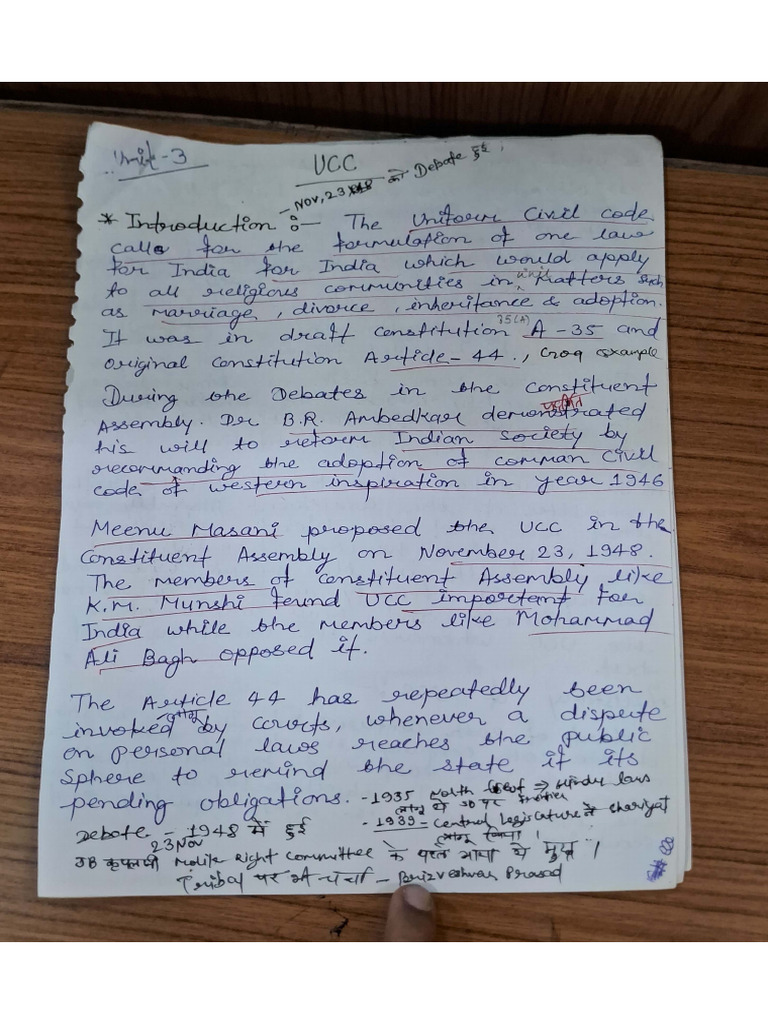 Unit-3
UCC
- Nov, 23 1948 को Debate हुई,
* Introduction :- The Uniform Civil code
calls for the formulation of one law
for India for India which would apply
to all religious communities in civil matters such
as marriage, divorce, inheritance & adoption.
35(A)
It was in draft constitution A-35 and
original constitution Article-44., Goa example
During the Debates in the constituent
Assembly. Dr B.R. Ambedkar demonstrated
his will to reform Indian society by
recommanding the adoption of comman Civil
code of western inspiration in year 1946
Meenu Masani proposed the UCC in the
Constituent Assembly on November 23, 1948.
The members of constituent Assembly like
K.M. Munshi fernd UCC important for
India while the members like Mohammad
Ali Bagh opposed it.
The Article 44 has repeatedly been
invoked by Courts, whenever a dispute
on personal laws reaches the public
Sphere to remind the state if its
pending obligations. - 1935 North → Hindu laws
लागू थे Frontier
Debate - 1948 में हुई - 1939 - Central Legislature ने Shariyat
23 Nov लागू किया।
JB कृपलानी Right Committee के
Tribal पर भी चर्चा - Brizveshwar Prasad